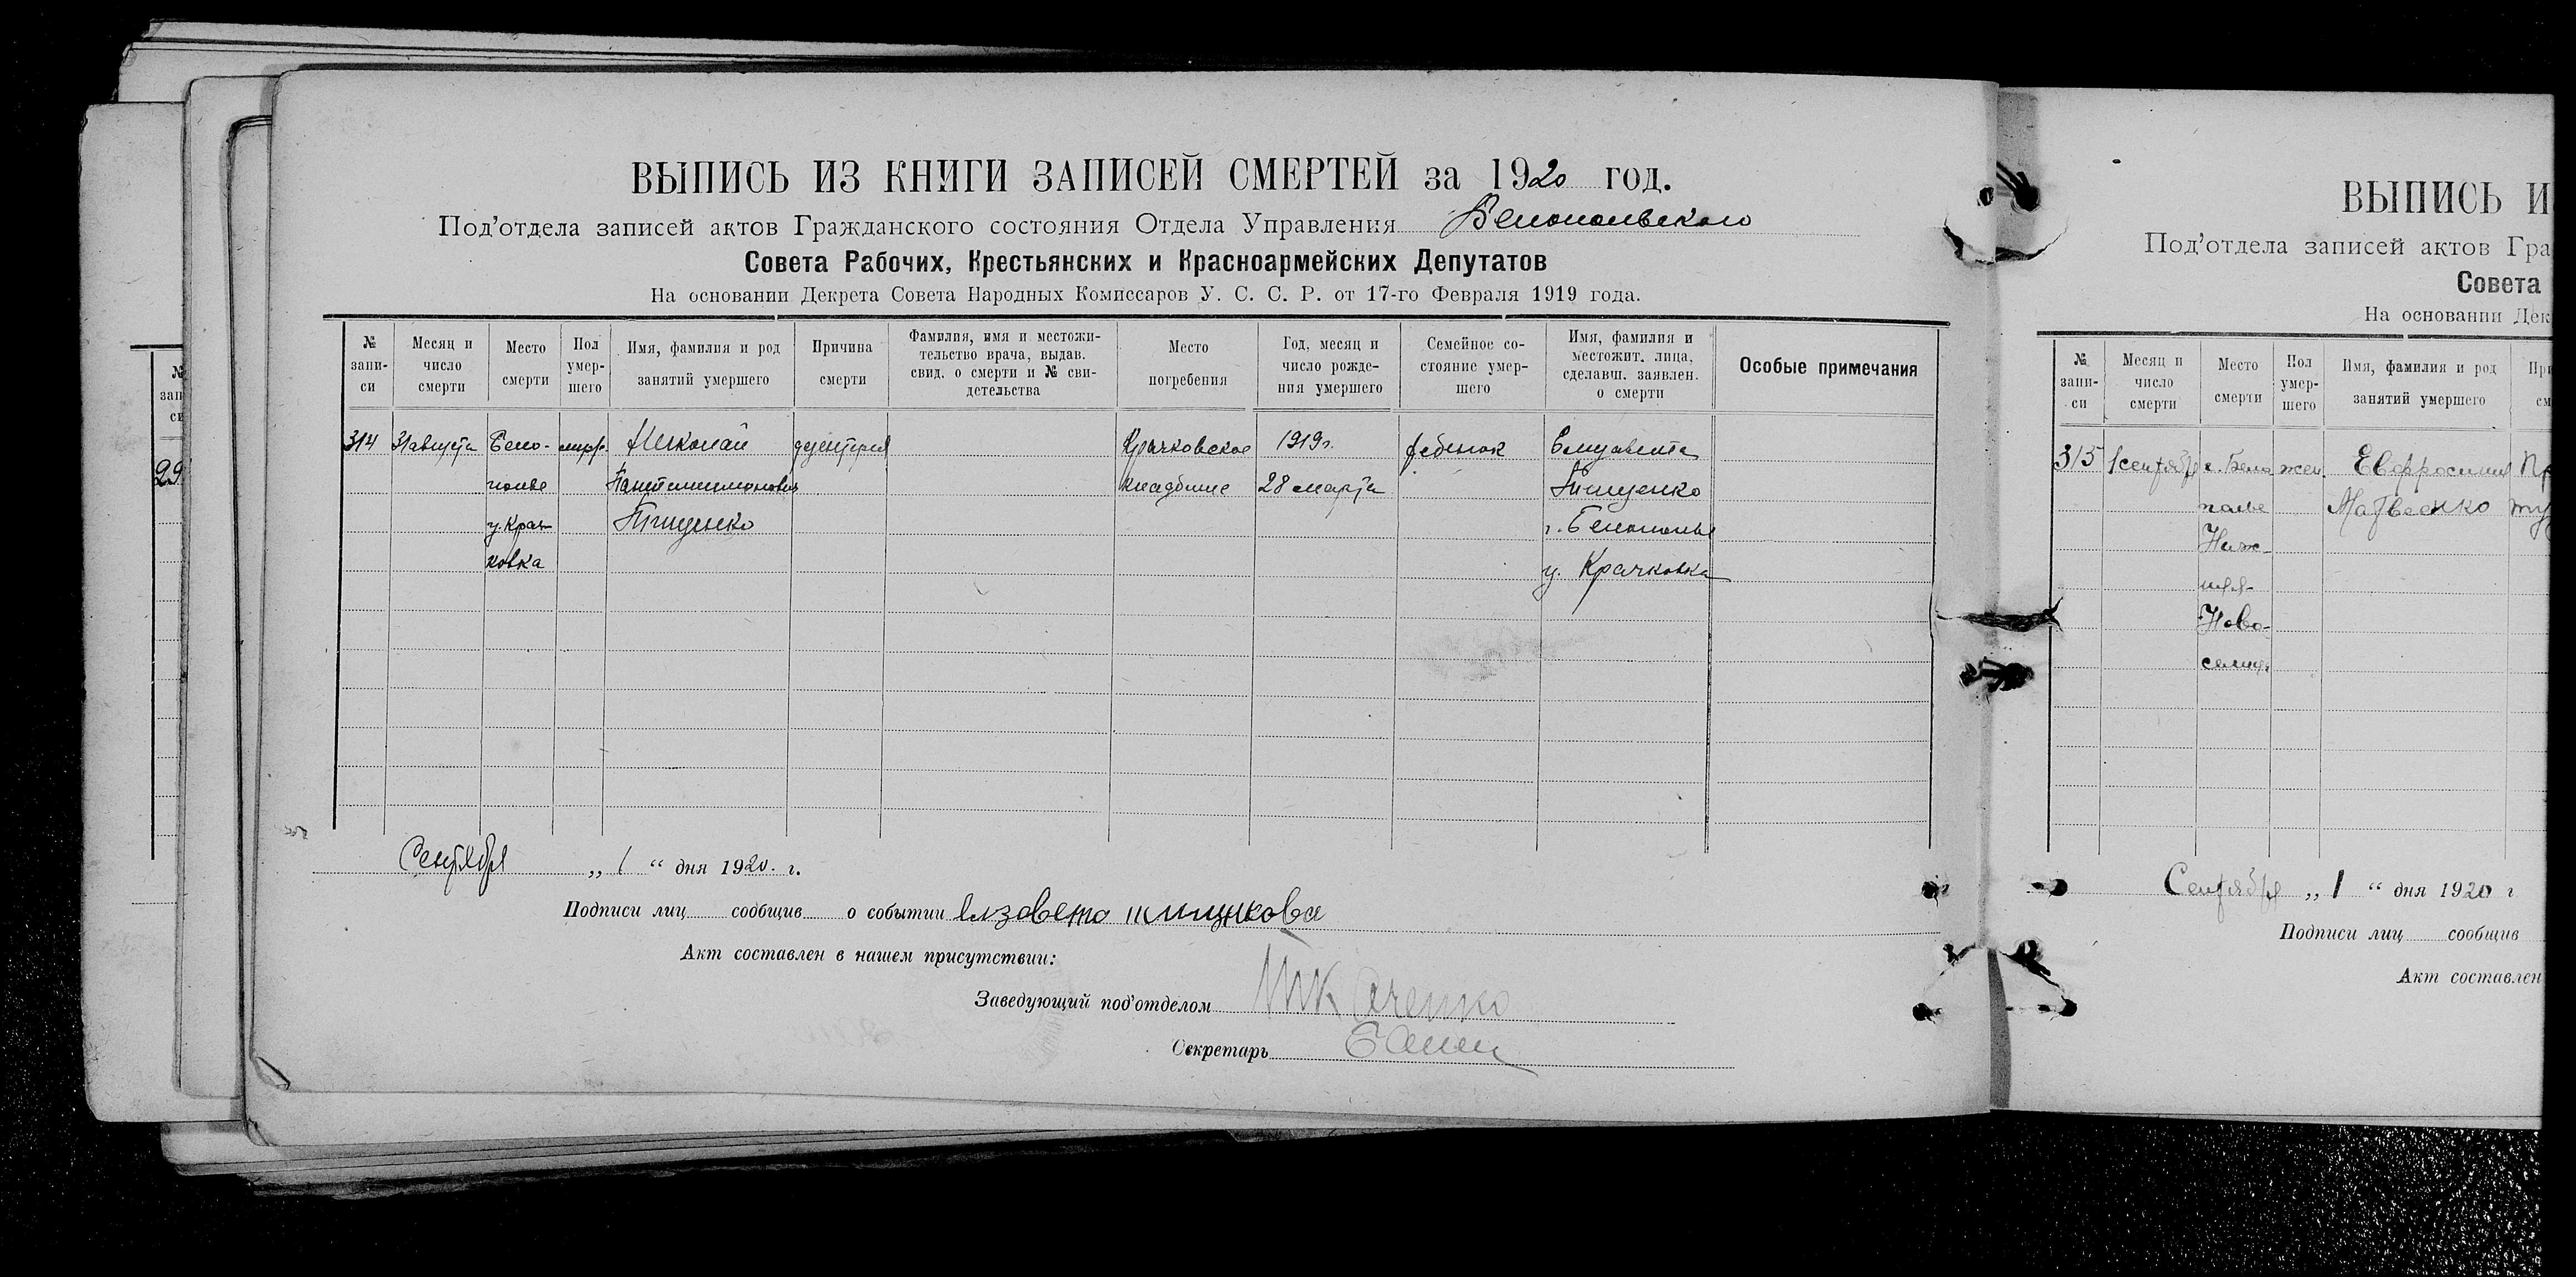 ВЫПИСЬ ИЗ КНИГИ ЗАПИСЕЙ СМЕРТЕЙ за 1920 год.
Под'отдела записей актов Гражданского состояния Отдела Управления Белопольского
Совета Рабочих, Крестьянских и Красноармейских Депутатов
На основании Декрета Совета Народных Комиссаров У. С. С. Р. от 17-го Февраля 1919 года.
№ запи-си
Месяц и число смерти
Место смерти
Пол умер-шего
Имя, фамилия и род занятий умершего
Причина смерти
Фамилия, имя и местожи-тельство врача, выдав. свид. о смерти и № сви-детельства
Место погребения
Год, месяц и число рожде-ния умершего
Семейное со-стояние умер-шего
Имя, фамилия и местожит. лица, сделавш. заявлен. о смерти
Особые примечания
314 31 августа Бело- Николай дизентерия Крачковское 1919 г. ребенок Елизавета
полье Пантелеимонович кладбище 28 марта Тищенко
у. Крач- Тищенко г. Белополье
ковка у. Крачковка
Сентября „ 1 “ дня 1920. г.
Подписи лиц сообщив о событии
Акт составлен в нашем присутствии:
Заведующий под'отделом Ткаченко
Секретарь
№ зап си
29
ВЫПИСЬ И
Под'отдела записей актов Гра
Совета
На основании Дек
№ запи-си
Месяц и число смерти
Место смерти
Пол умер-шего
Имя, фамилия и род занятий умершего
При см
315 1 сентября г. Бело жен. Евфросиния
полье Матвеенко
Ниж-
няя-
Ново-
Сентября „ 1 “ дня 1920 г
Подписи лиц сообщив
Акт составлен